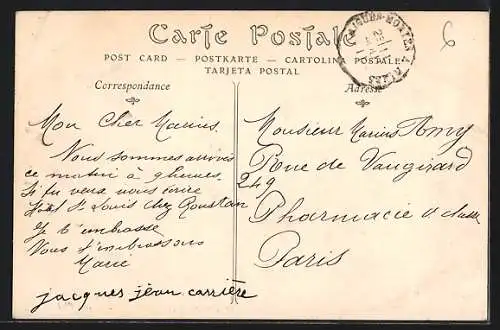 Carte Postale
POST CARD — POSTKARTE — CARTOLINA POSTALE
TARJETA POSTAL
Correspondance
Adresse
6
Mon Cher Marius
Nous sommes arrivés
ce matin à 9 heures.
Si tu veux nous écrire
Hôtel St Louis chez Roustan
Je t'embrasse
Nous t'embrassons
Marie
jacques jean carrière
Monsieur Marius Amy
Rue de Vaugirard
249
Pharmacie
Paris